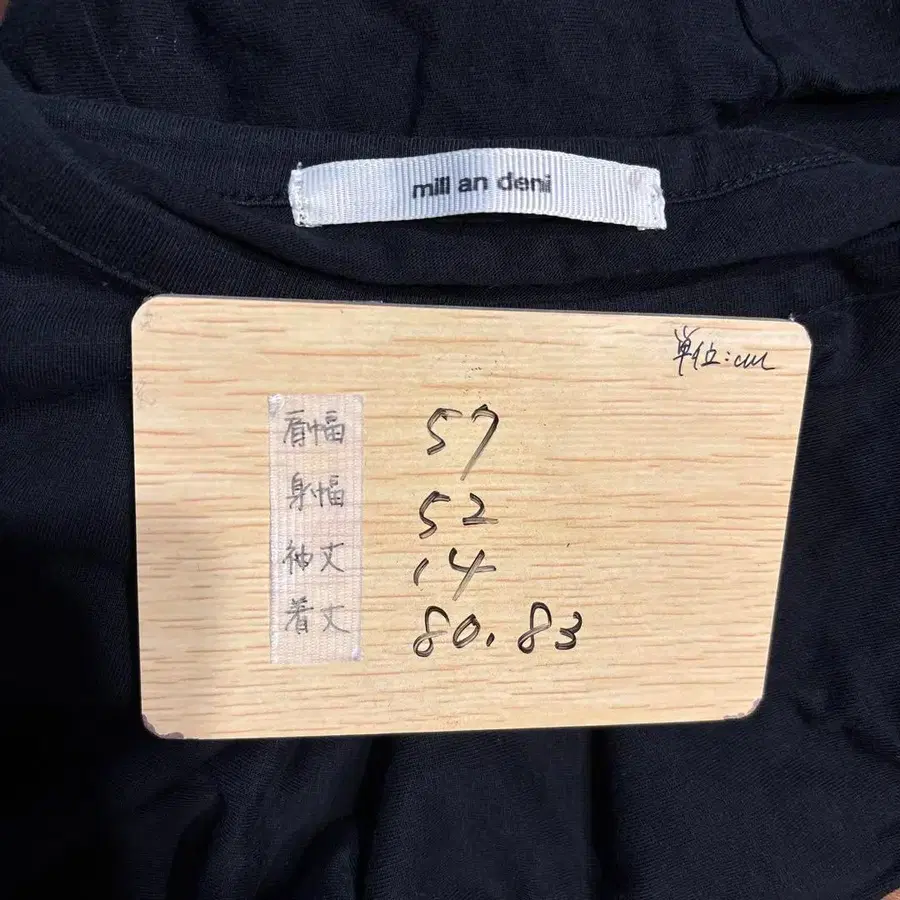 mill an deni
単位:cm
肩幅 57
身幅 52
袖丈 14
着丈 80.83